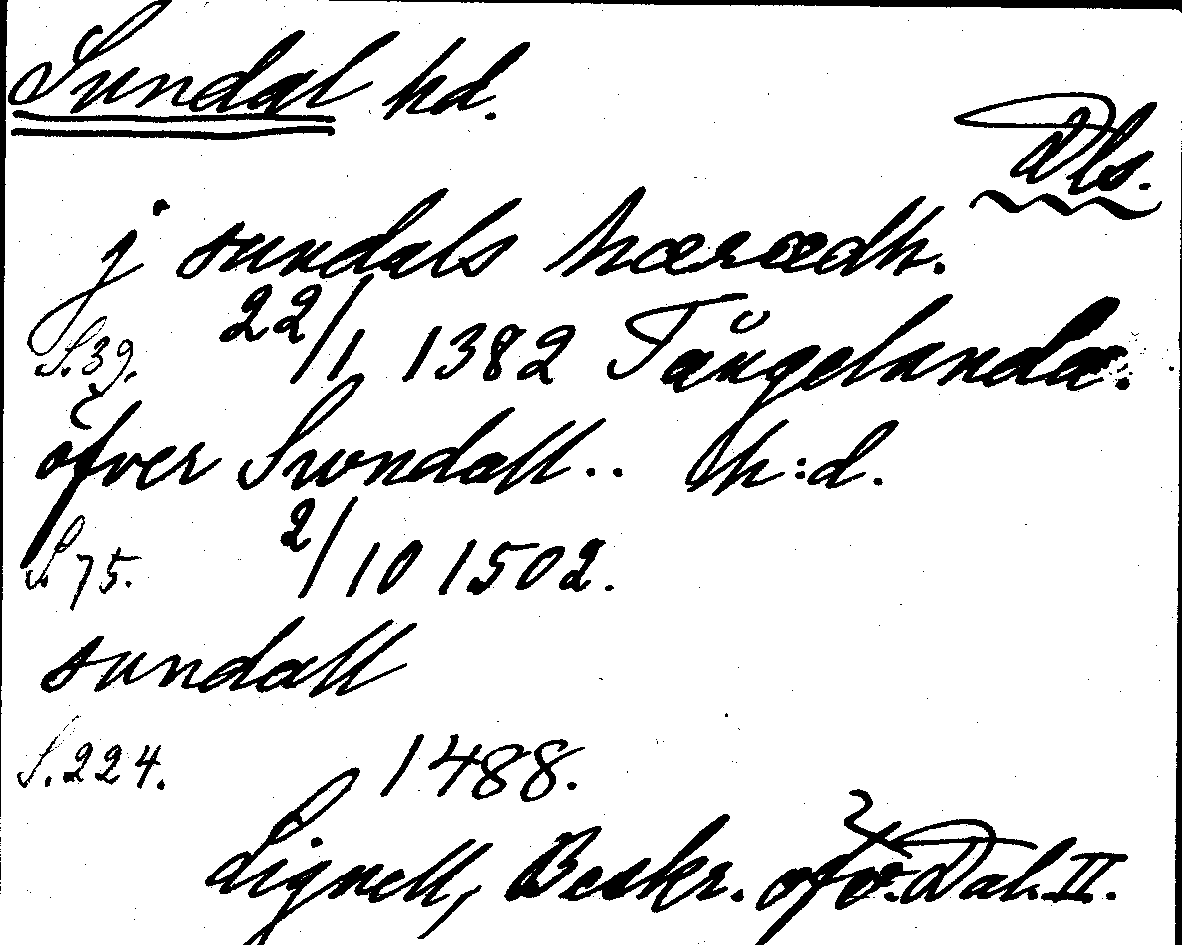 Sundal hd.
Dls.
j sundals hærædh.
S. 39. 22/1 1382 Tängelanda.
öfver Swndall.. h:d.
S. 75. 2/10 1502.
sundall
S. 224. 1488.
Lignell, Beskr. öfv. Dal. II.